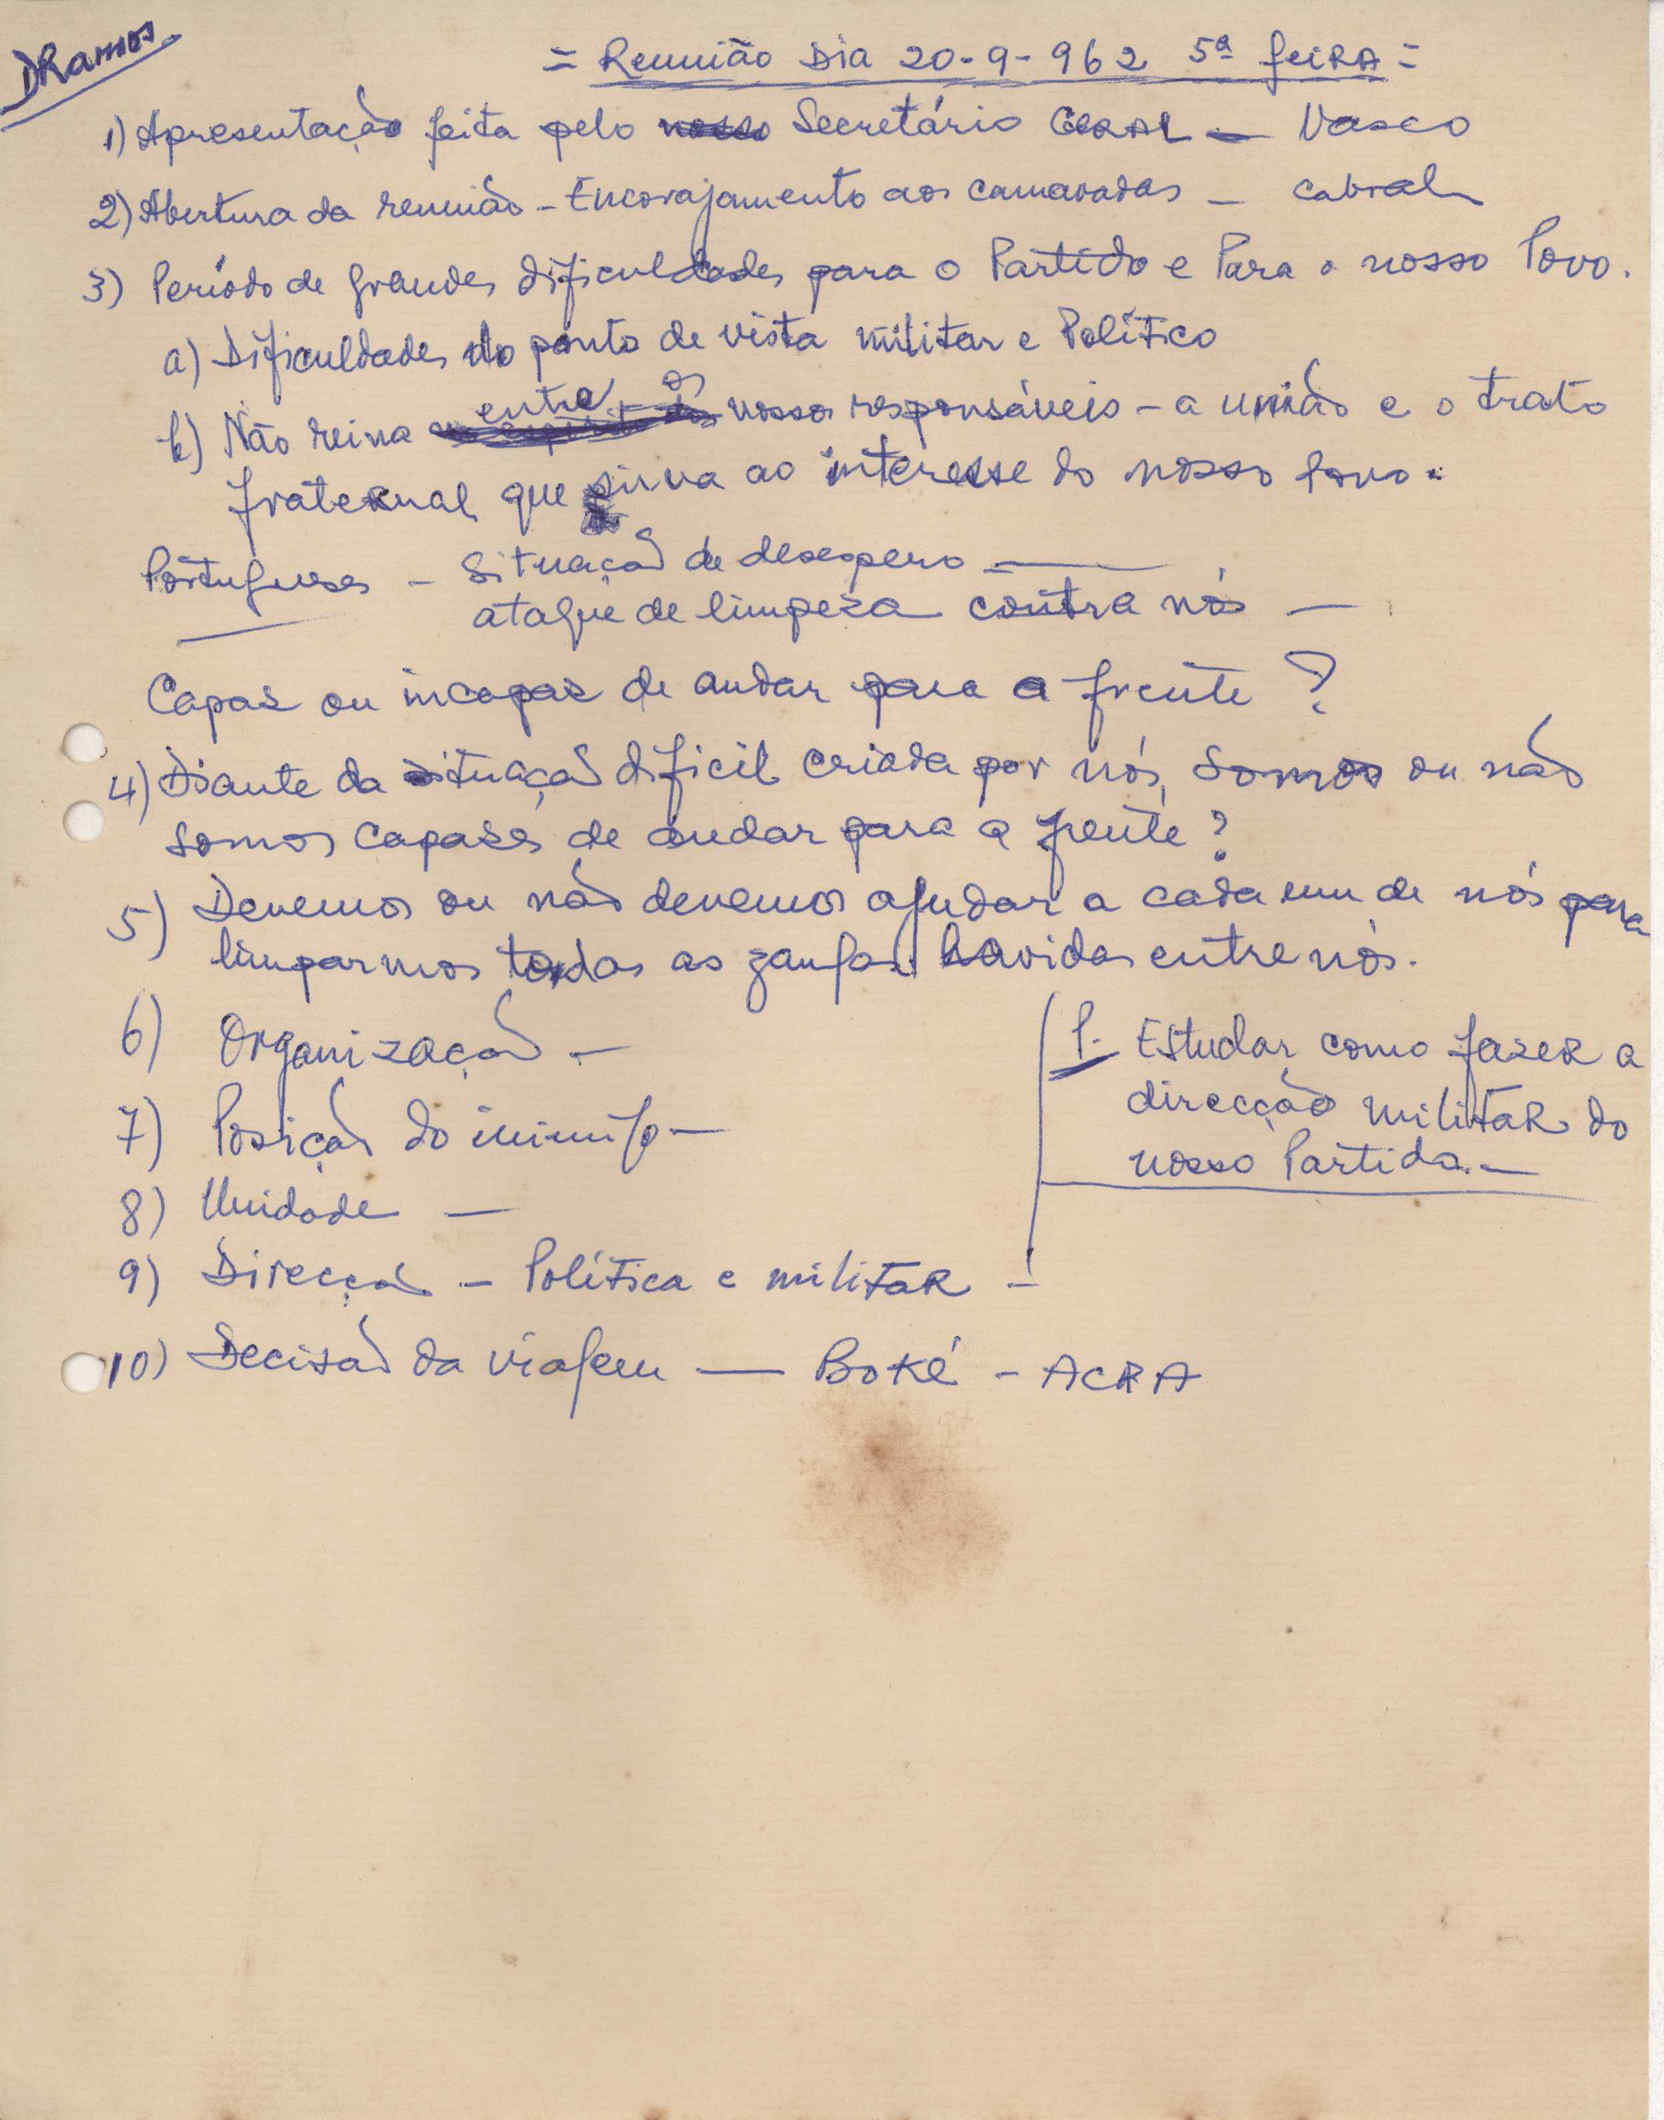 DRamos
= Reunião Dia 20-9-962 5ª feiRA =
1) Apresentação feita pelo nosso Secretário GERAL — Vasco
2) Abertura da reunião - Encorajamento aos camaradas — Cabral
3) Período de grandes dificuldades para o Partido e Para o nosso Povo.
a) Dificuldades do ponto de vista militar e Político
entre os
b) Não reina nossos responsáveis - a união e o trato
fraternal que sirva ao interesse do nosso Povo.
Portugueses - Situação de desespero —
ataque de limpeza contra nós —
Capas ou incapas de andar para a frente ?
4) Diante da situação dificil criada por nós, somos ou não
somos capases de andar para a frente ?
5) Devemos ou não devemos ajudar a cada um de nós para
limparmos todas as zangas havidas entre nós.
6) Organização —
7) Posição do inimigo —
8) Unidade —
9) Direcção — Política e militaR —
10) Decisão da viagem — Boké - ACRA
P. Estudar como fazeR a
direcção militaR do
nosso Partido. —